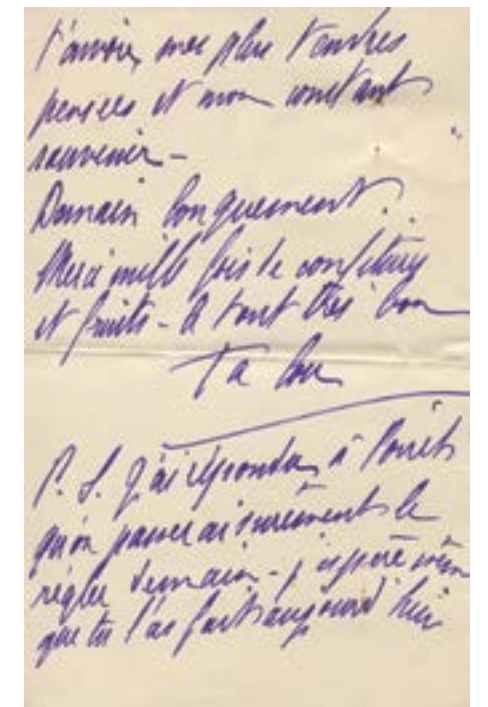 t'envoie mes plus tendres
pensées et mon constant
souvenir –
Demain longuement..
Merci mille fois de confitures
et fruits – a tout très bon
Ta Lou
P. S. J'ai répondu à
qu'on passerait surement le
régler demain – j'espère même
que tu l'as fait aujourd'hui